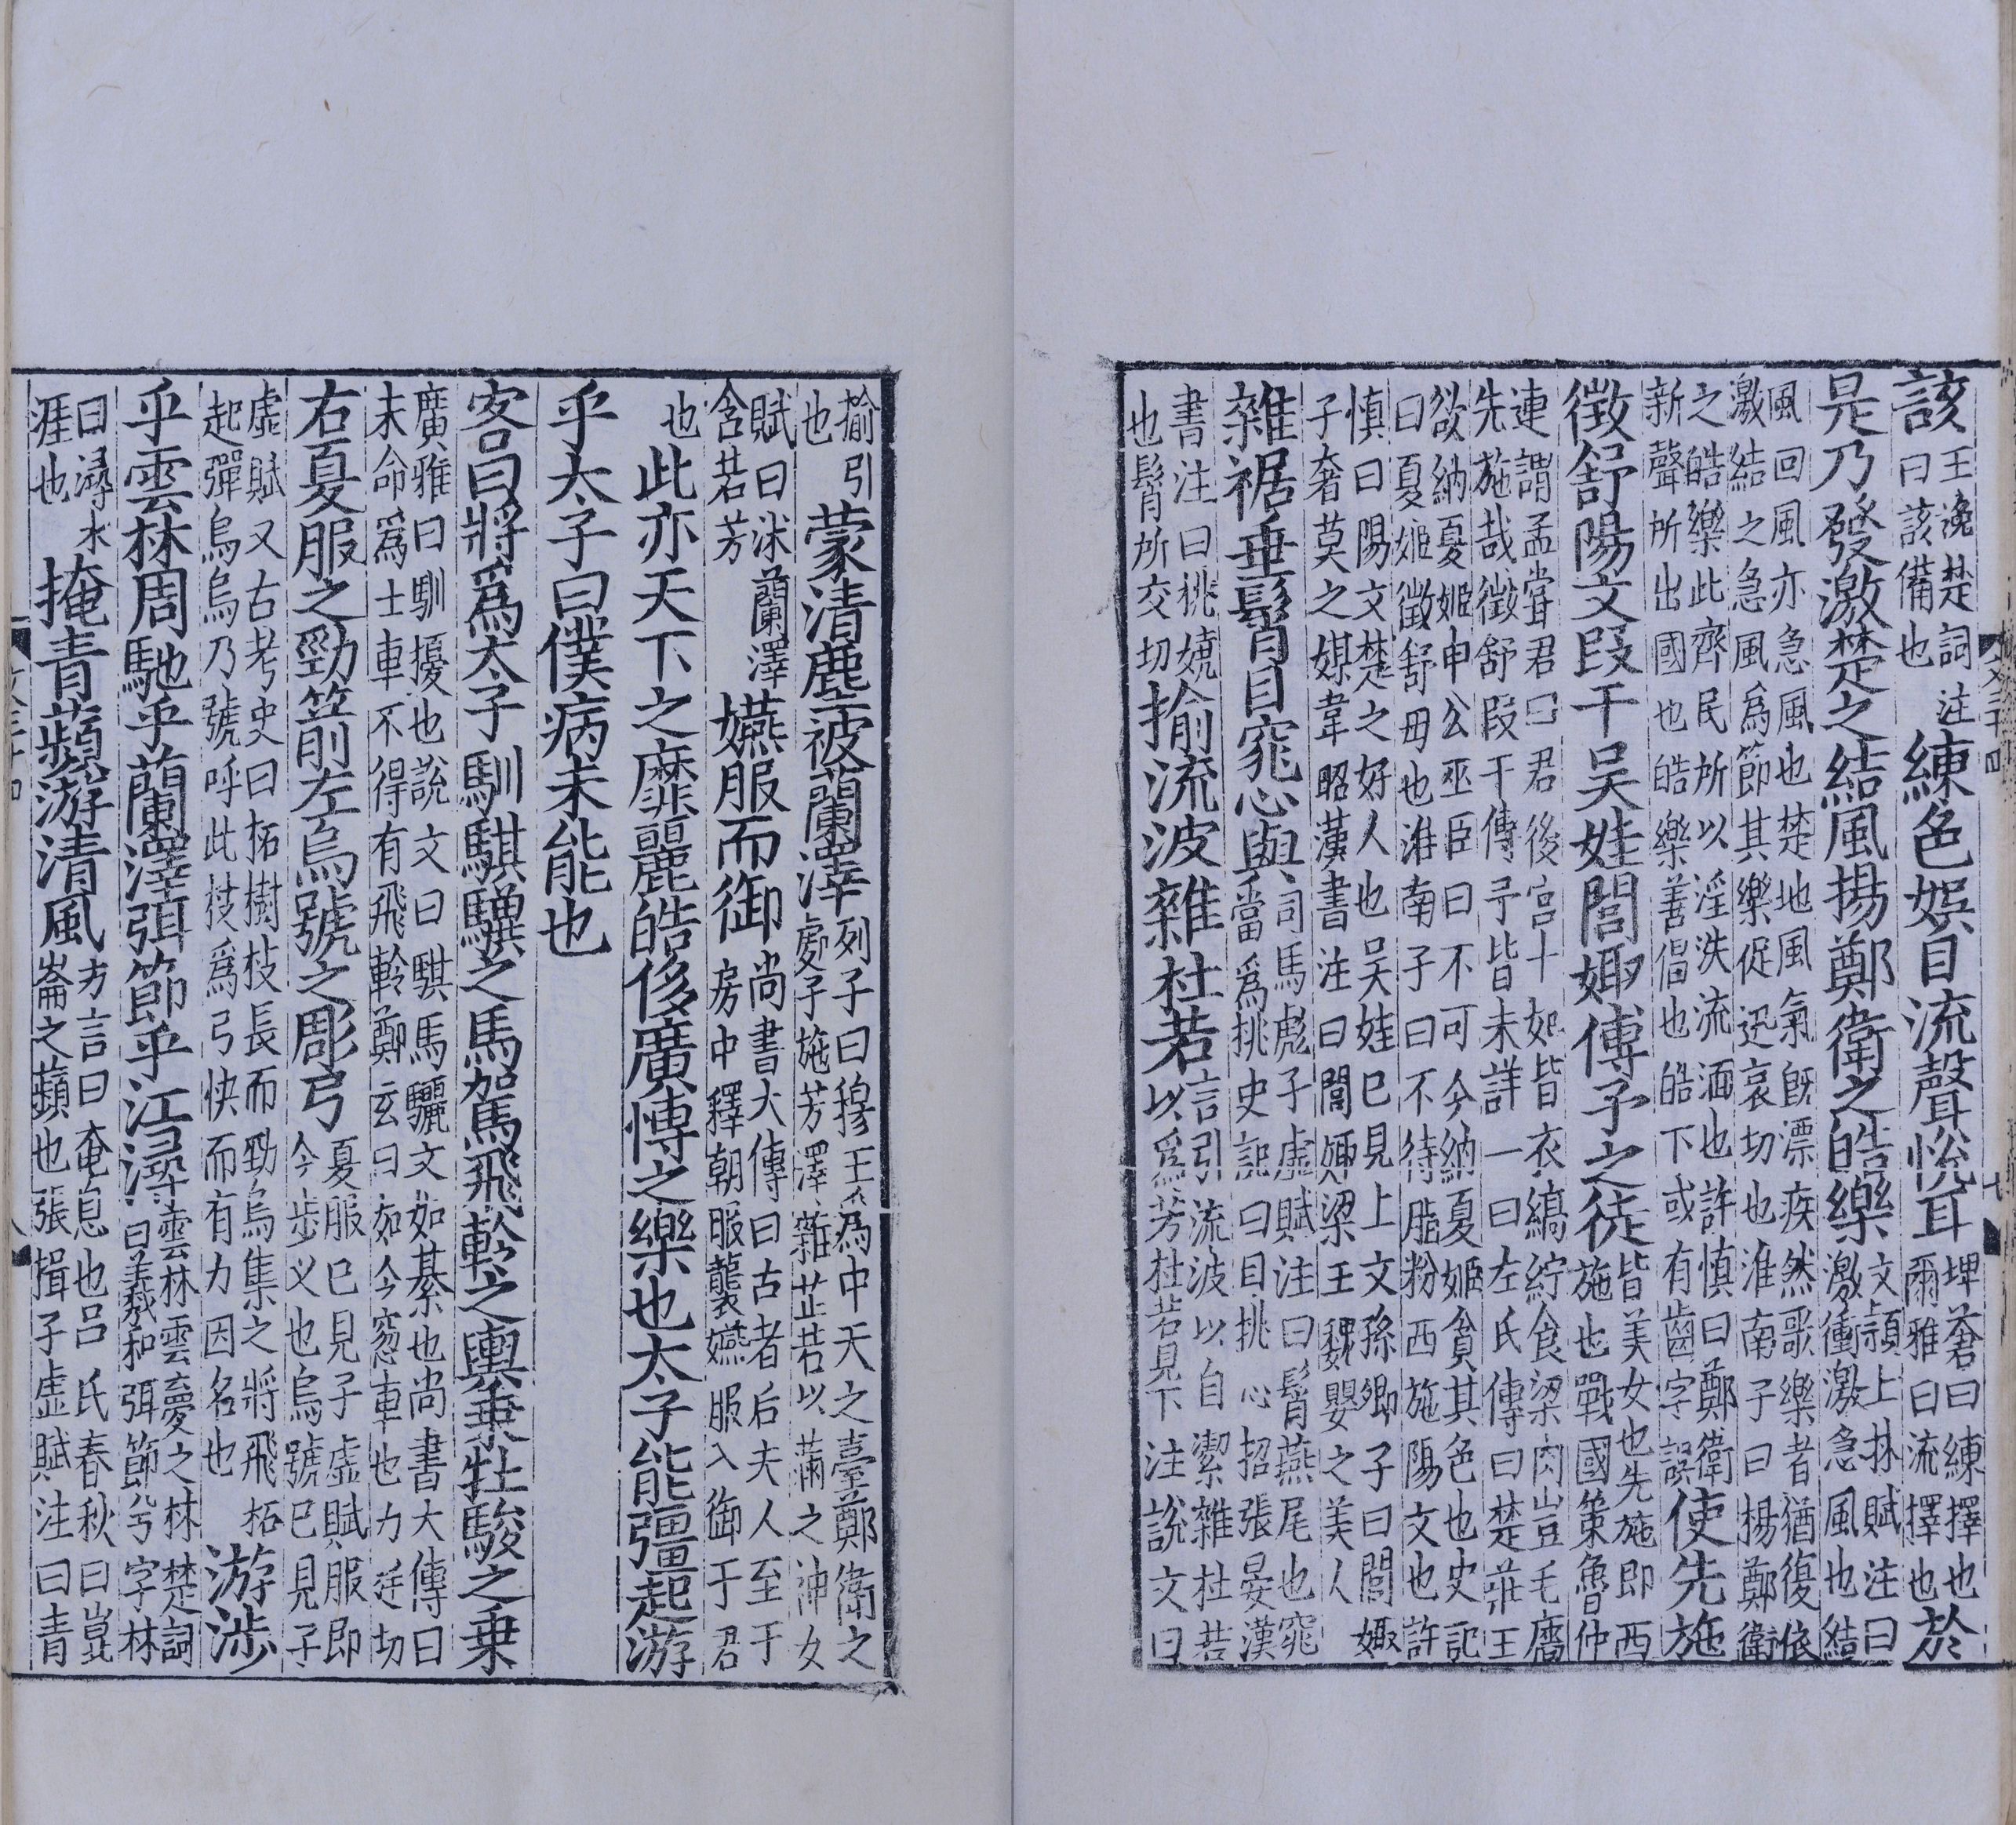 該王逸楚詞注曰該備也練色娯目流聲悅耳埤蒼曰練擇也爾雅曰流擇也於
是乃發激楚之結風揚鄭衛之皓樂文頴上林賦注曰激衝激急風也結
風回風亦急風也楚地風氣旣漂疾然歌樂者猶復依
激結之急風爲節其樂促迅哀切也淮南子曰揚鄭衛
之皓樂此齊民所以淫泆流湎也許慎曰鄭衛新聲所出國也皓樂善倡也皓下或有齒字誤使先施
徵舒陽文段干吴娃閭娵傅予之徒皆美女也先施即西施也戰國策魯仲
連謂孟嘗君曰君後宫十妃皆衣縞紵食梁肉豈毛嬙
先施哉徵舒段干傅予皆未詳一曰左氏傳曰楚莊王
欲納夏姬申公巫臣曰不可今納夏姬貪其色也史記
曰夏姬徵舒毋也淮南子曰不待脂粉西施陽文也許
慎曰陽文楚之好人也吴娃已見上文孫卿子曰閭娵
子奢莫之媒韋昭漢書注曰閭娵梁王魏嬰之美人
雜裾垂髾目窕心與司馬彪子虚賦注曰髾燕尾也窕當爲挑史記曰目挑心招張晏漢
書注曰挑嬈也髾所交切揄流波雜杜若言引流波以自潔雜杜若以爲芳杜若見下注說文曰
揄引也蒙清塵被蘭澤列子曰穆王為中天之臺鄭衛之處子施芳澤雜芷若以滿之神女
賦曰沐蘭澤含若芳嬿服而御尚書大傳曰古者后夫人至于房中釋朝服襲嬿服入御于君
也此亦天下之靡麗皓侈廣愽之樂也太子能彊起游
乎太子曰僕病未能也
客曰將爲太子馴騏驥之馬駕飛軨之輿乗牡駿之乗
廣雅曰馴擾也說文曰騏馬驪文如綦也尚書大傳曰
未命爲士車不得有飛軨鄭玄曰如今窓車也力廷切
右夏服之勁箭左烏號之彫弓夏服已見子虚賦服即今步乂也烏號已見子
虚賦又古考史曰柘樹枝長而勁烏集之將飛柘起彈烏烏乃號呼此枝爲弓快而有力因名也游涉
乎雲林周馳乎蘭澤弭節乎江潯雲林雲夢之林楚詞曰羲和弭節兮字林
曰潯水涯也掩青蘋游清風方言曰奄息也吕氏春秋曰崑崙之蘋也張揖子虚賦注曰青